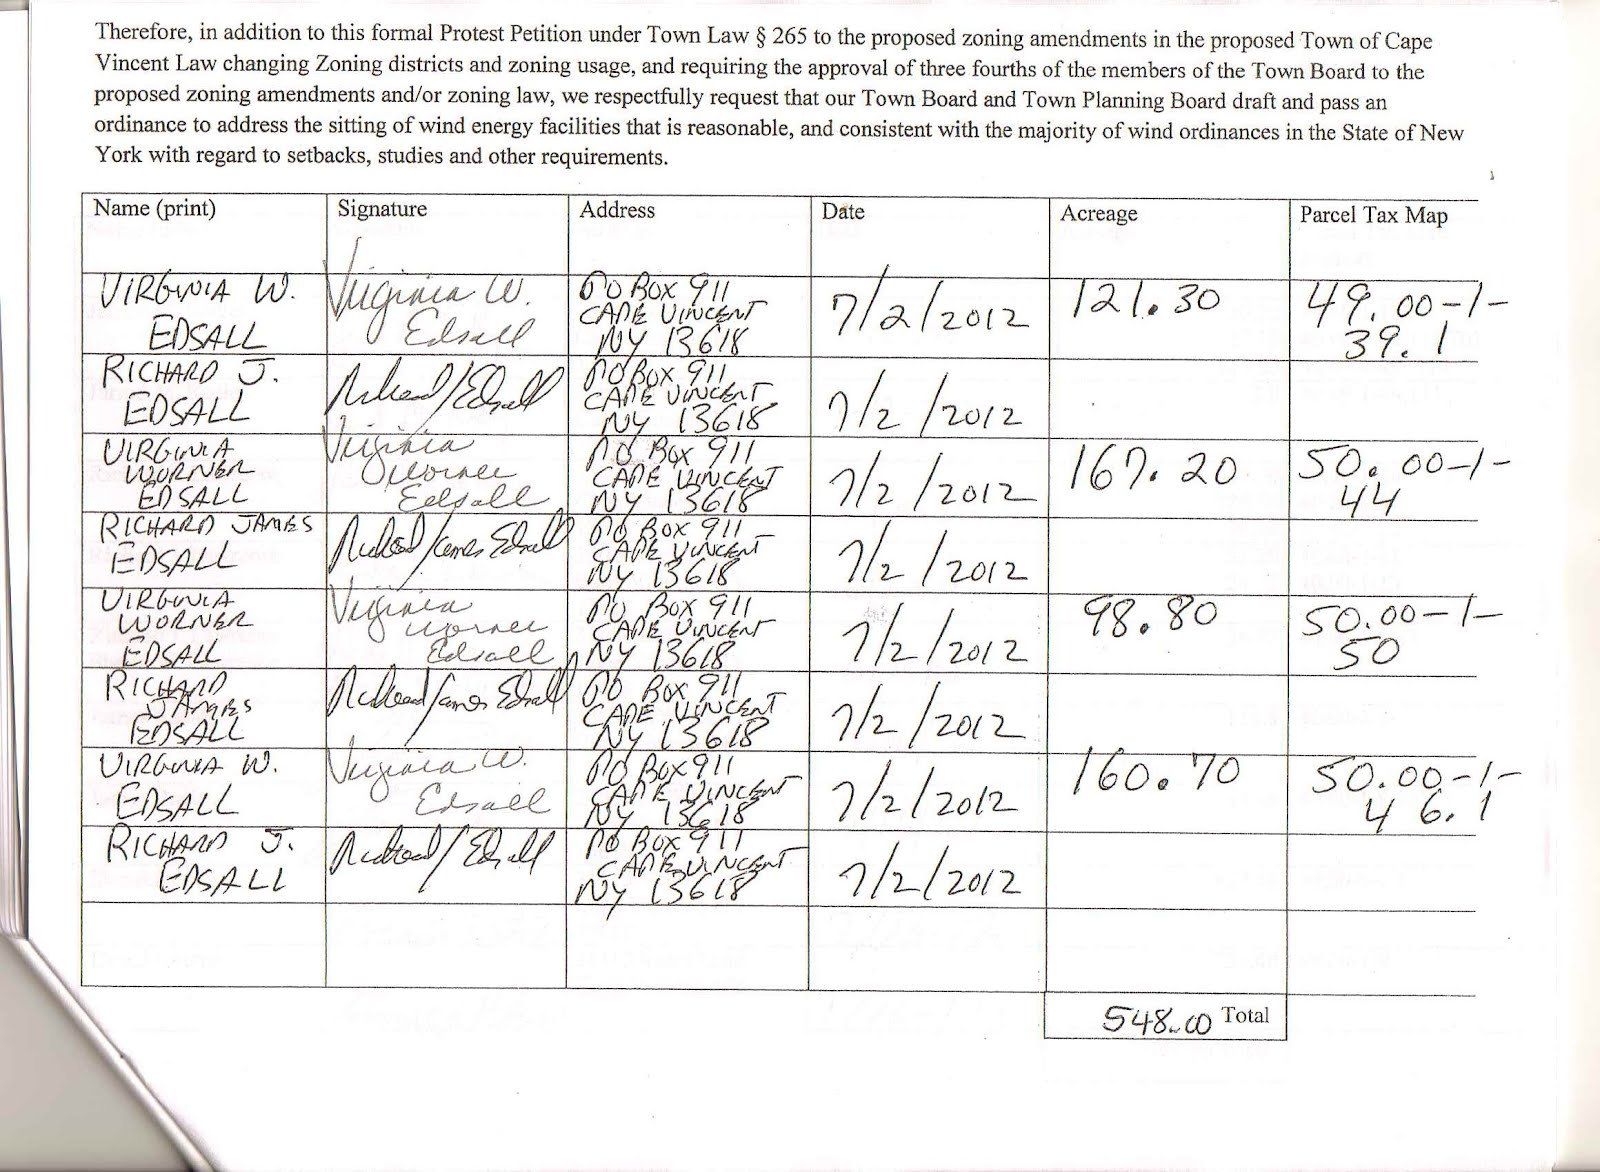 Therefore, in addition to this formal Protest Petition under Town Law § 265 to the proposed zoning amendments in the proposed Town of Cape
Vincent Law changing Zoning districts and zoning usage, and requiring the approval of three fourths of the members of the Town Board to the
proposed zoning amendments and/or zoning law, we respectfully request that our Town Board and Town Planning Board draft and pass an
ordinance to address the sitting of wind energy facilities that is reasonable, and consistent with the majority of wind ordinances in the State of New
York with regard to setbacks, studies and other requirements.
Name (print) Signature Address Date Acreage Parcel Tax Map
VIRGINIA W. Virginia W. PO BOX 911 7/2/2012 121.30 49.00-1-
EDSALL Edsall CAPE VINCENT 39.1
NY 13618
RICHARD J. Richard J Edsall PO BOX 911 7/2/2012
EDSALL CAPE VINCENT
NY 13618
VIRGINIA Virginia PO BOX 911 7/2/2012 167.20 50.00-1-
WORNER Worner CAPE VINCENT 44
EDSALL Edsall NY 13618
RICHARD JAMES Richard James Edsall PO BOX 911 7/2/2012
EDSALL CAPE VINCENT
NY 13618
VIRGINIA Virginia PO BOX 911 7/2/2012 98.80 50.00-1-
WORNER Worner CAPE VINCENT 50
EDSALL Edsall NY 13618
RICHARD Richard James Edsall PO BOX 911 7/2/2012
JAMES CAPE VINCENT
EDSALL NY 13618
VIRGINIA W. Virginia W. PO BOX 911 7/2/2012 160.70 50.00-1-
EDSALL Edsall CAPE VINCENT 46.1
NY 13618
RICHARD J. Richard J Edsall PO BOX 911 7/2/2012
EDSALL CAPE VINCENT
NY 13618
548.00 Total